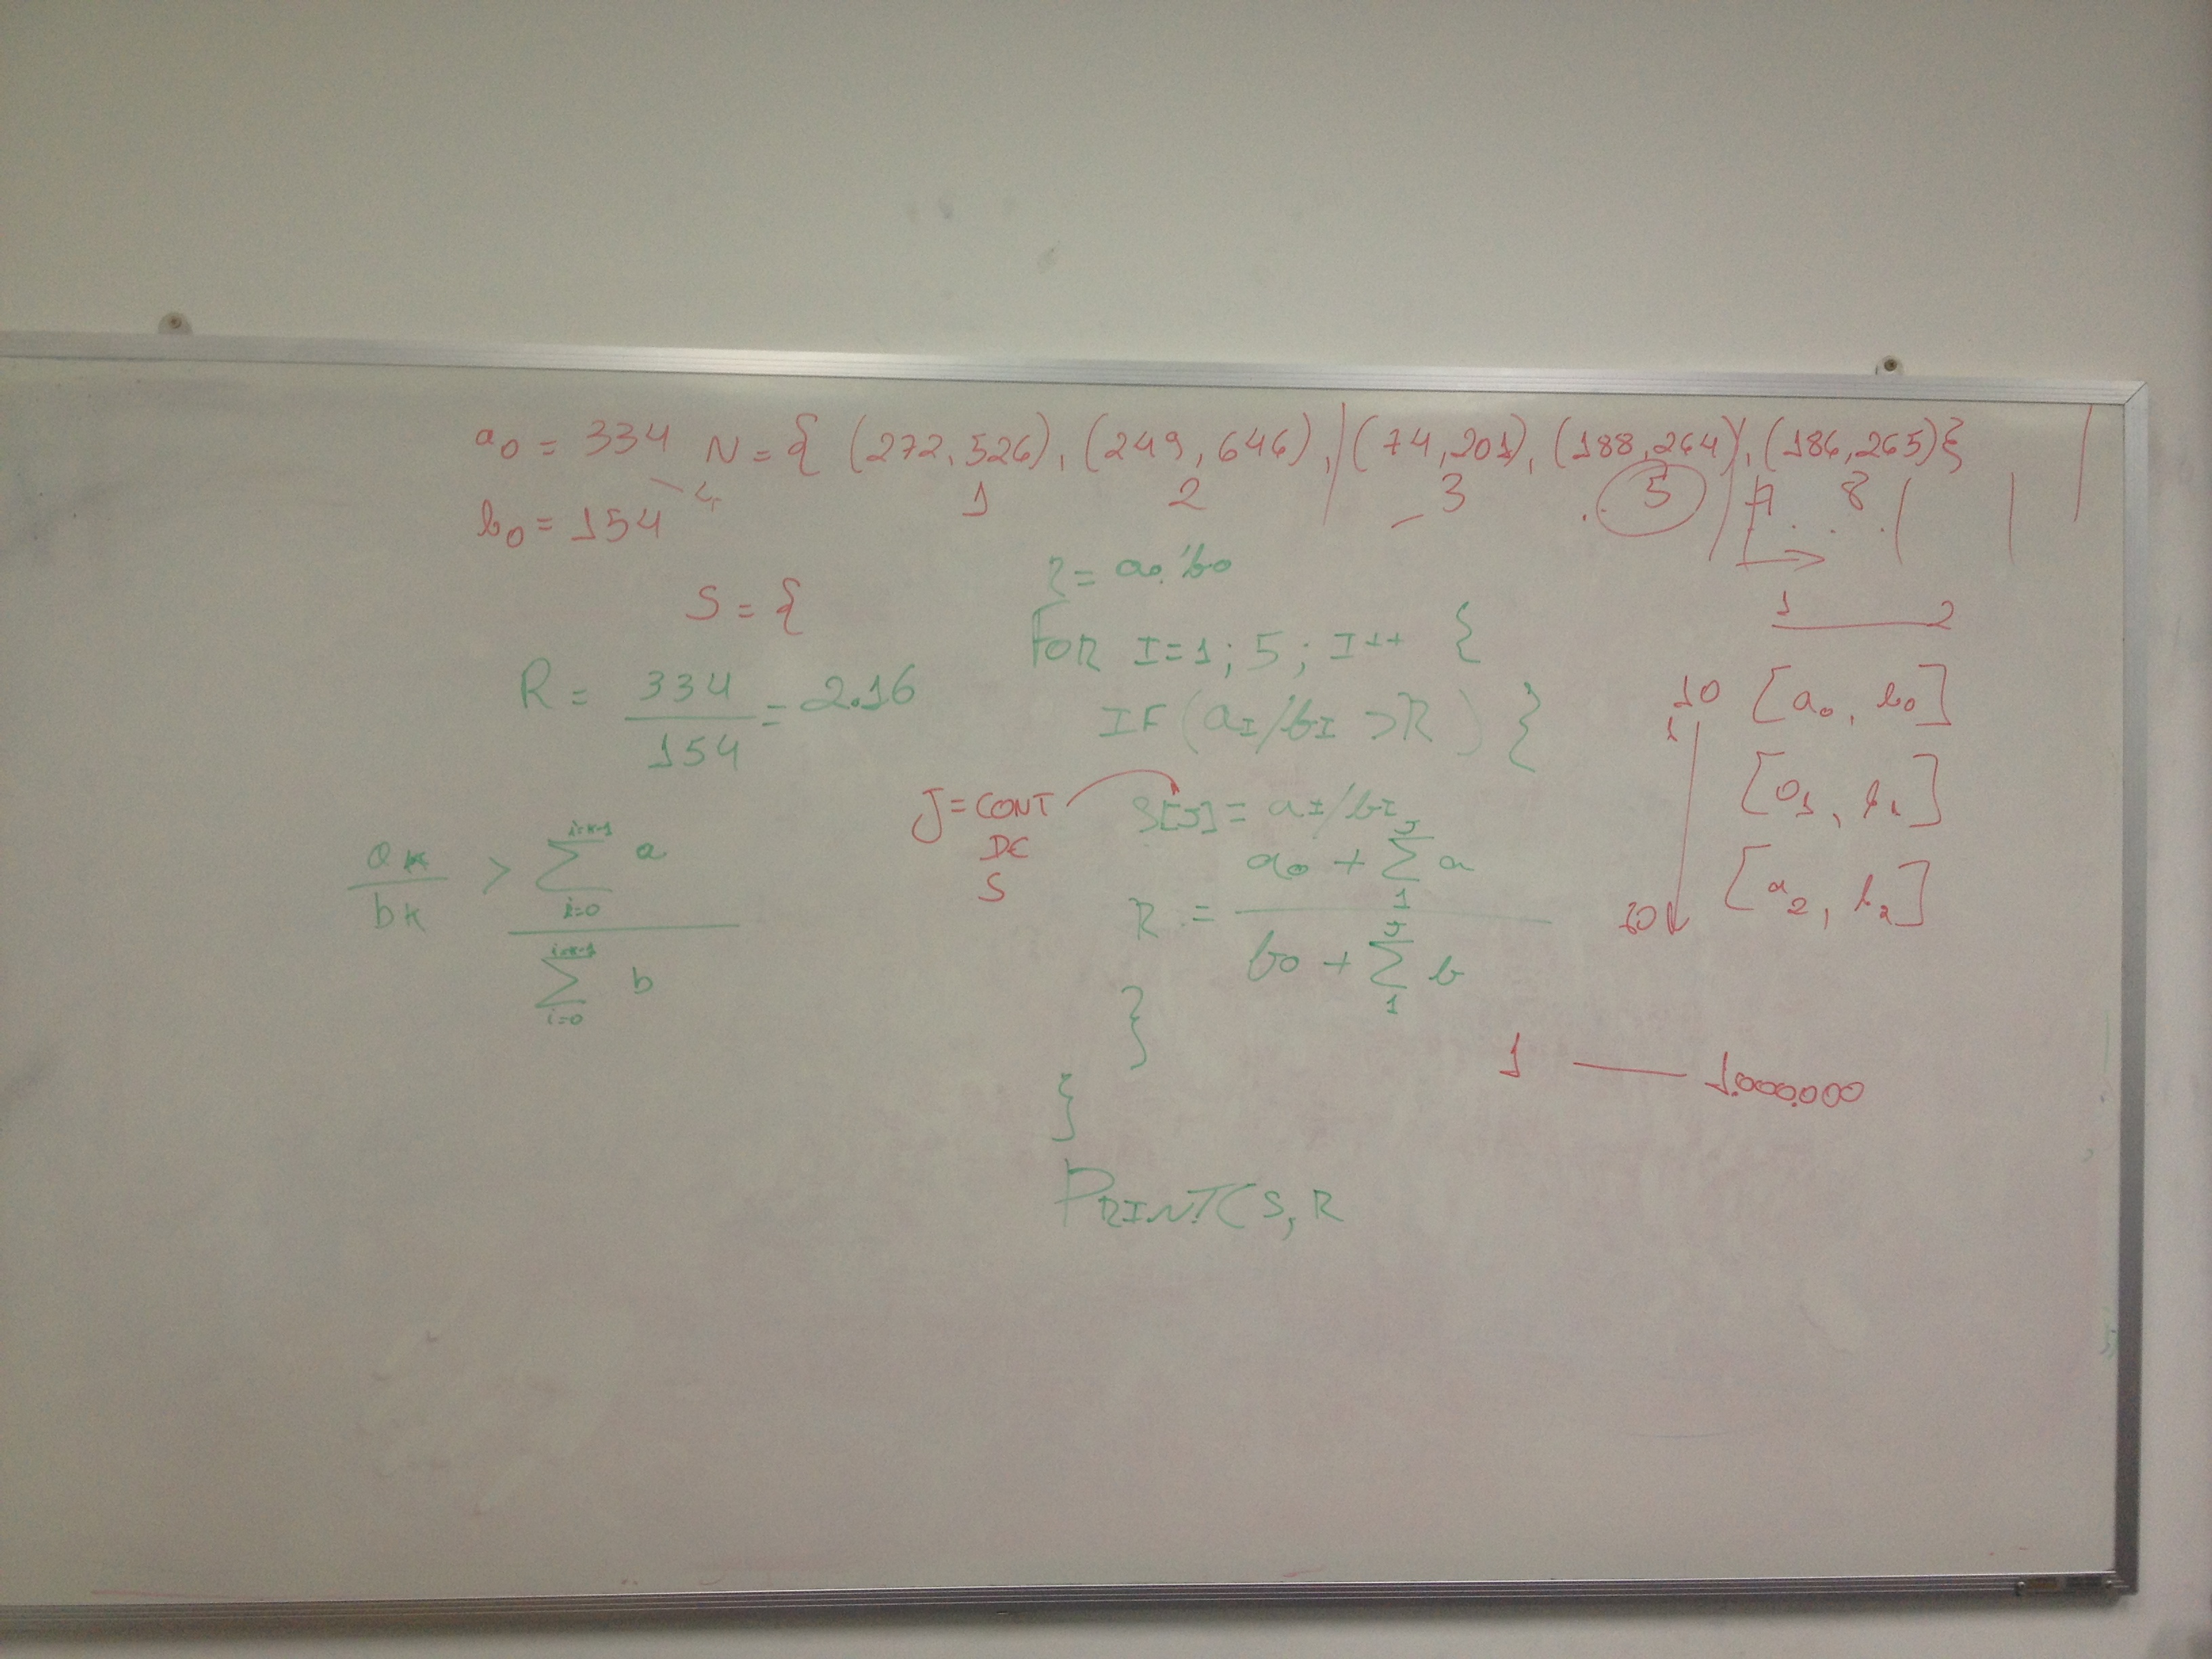 a0 = 334 N = { (272,526), (249,646), (74,201), (188,264), (186,265)}
b0 = 154
1 2 3 5 8
S = {
R = 334/154 = 2.16
ak/bk > ∑ i=0 i=k-1 a / ∑ i=0 i=k-1 b
R = a0/b0
FOR I=1; 5; I++ {
IF (aI/bI > R) {
J = CONT
DE
S
S[J] = aI/bI
R = a0 + ∑ 1 J a / b0 + ∑ 1 J b
}
}
PRINT(S,R
1 2
10 [a0, b0]
1 [a1, b1]
[a2, b2]
1 — 1.000.000